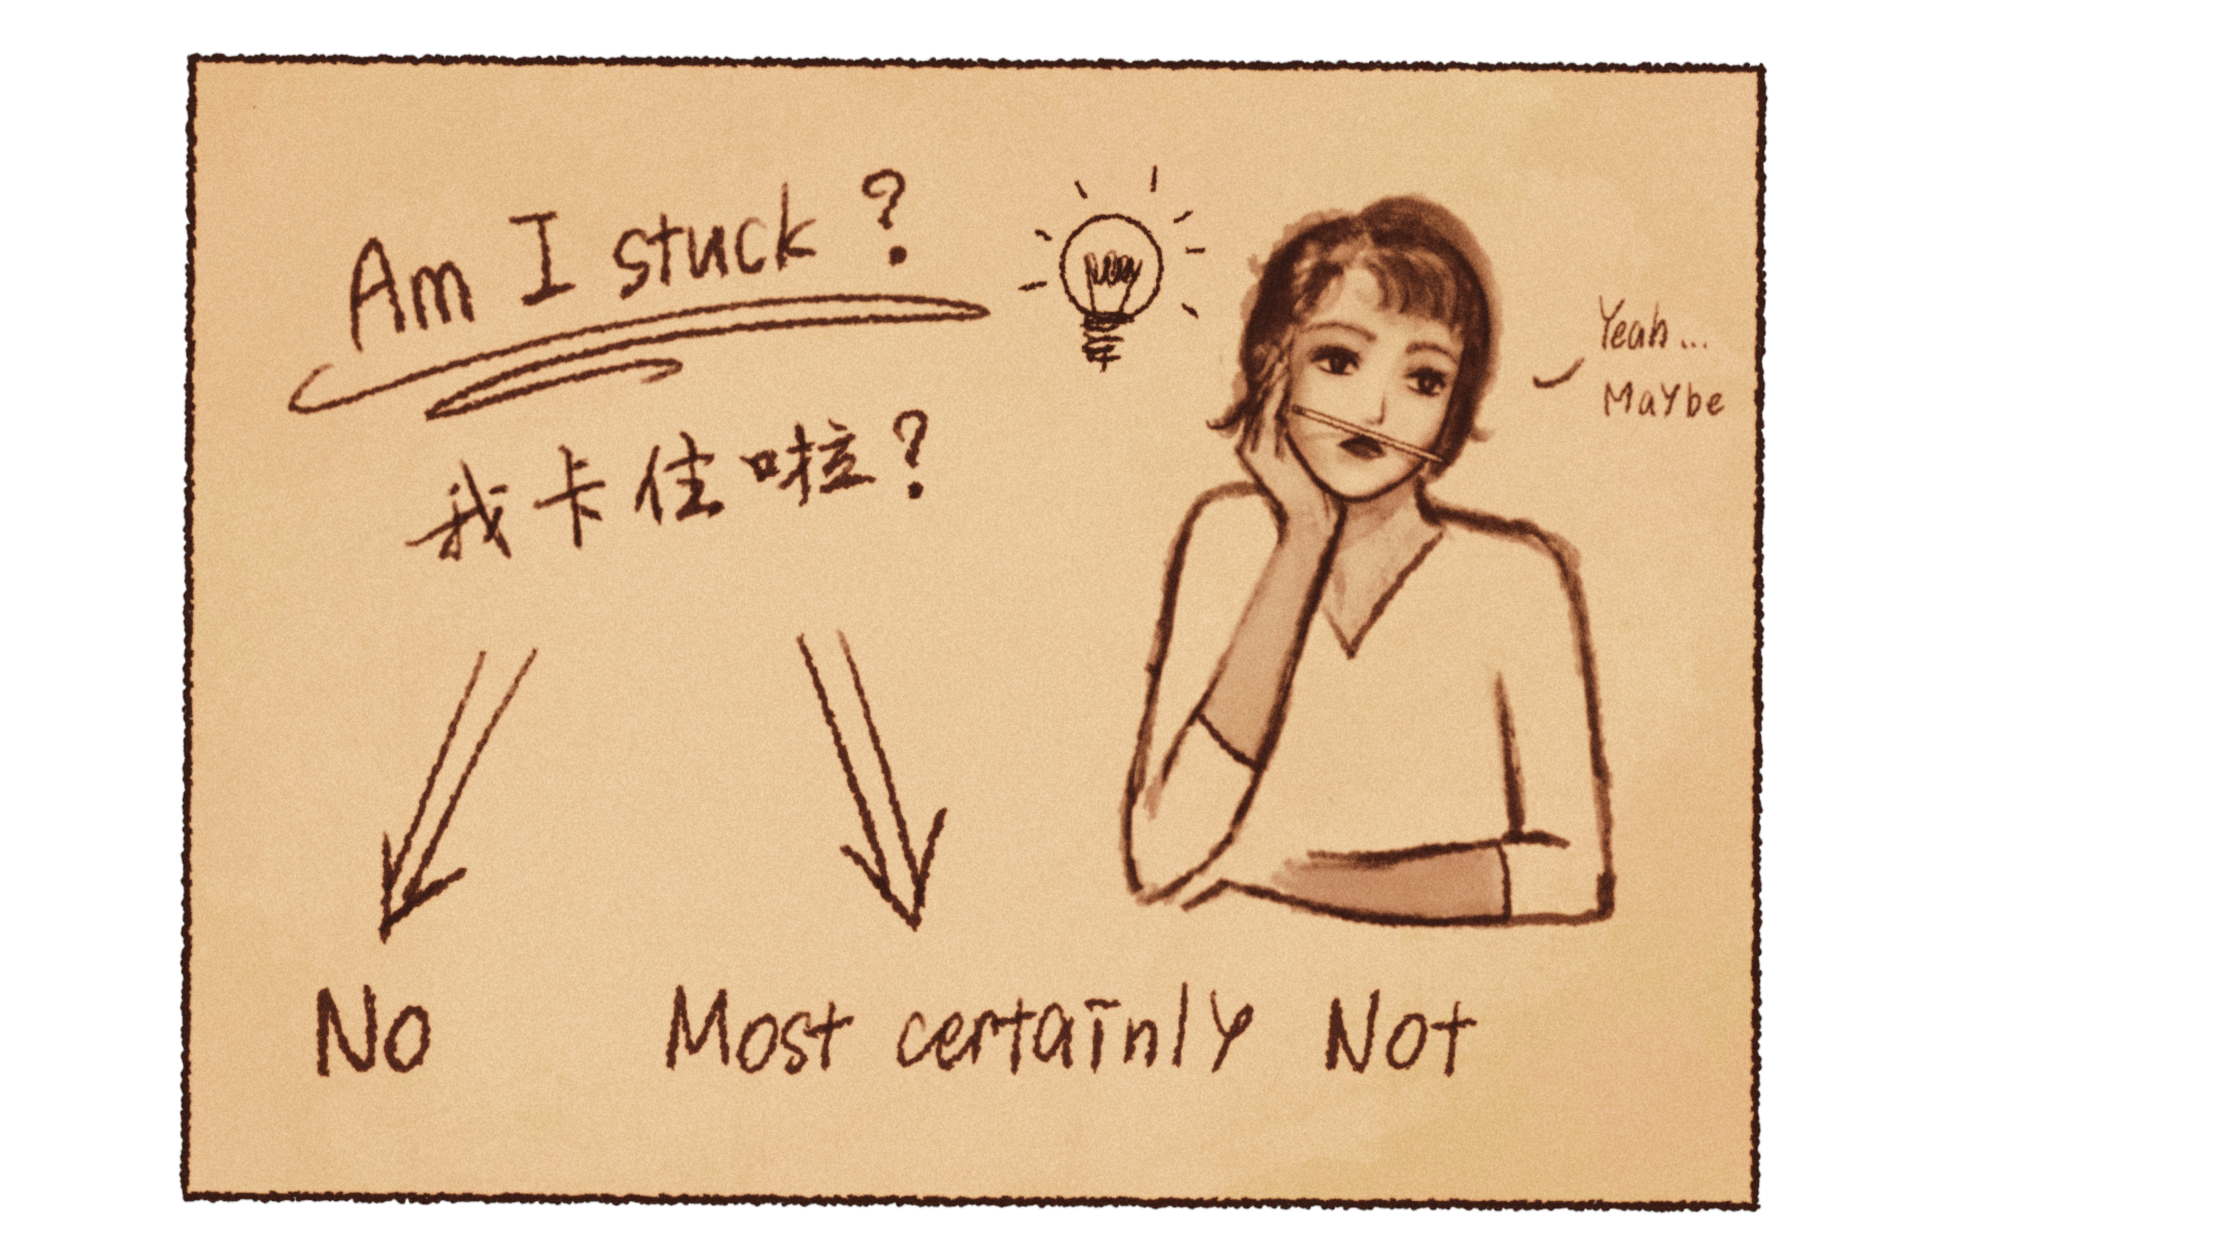 Am I stuck?
我卡住啦?
Yeah...
Maybe
No
Most certainly Not